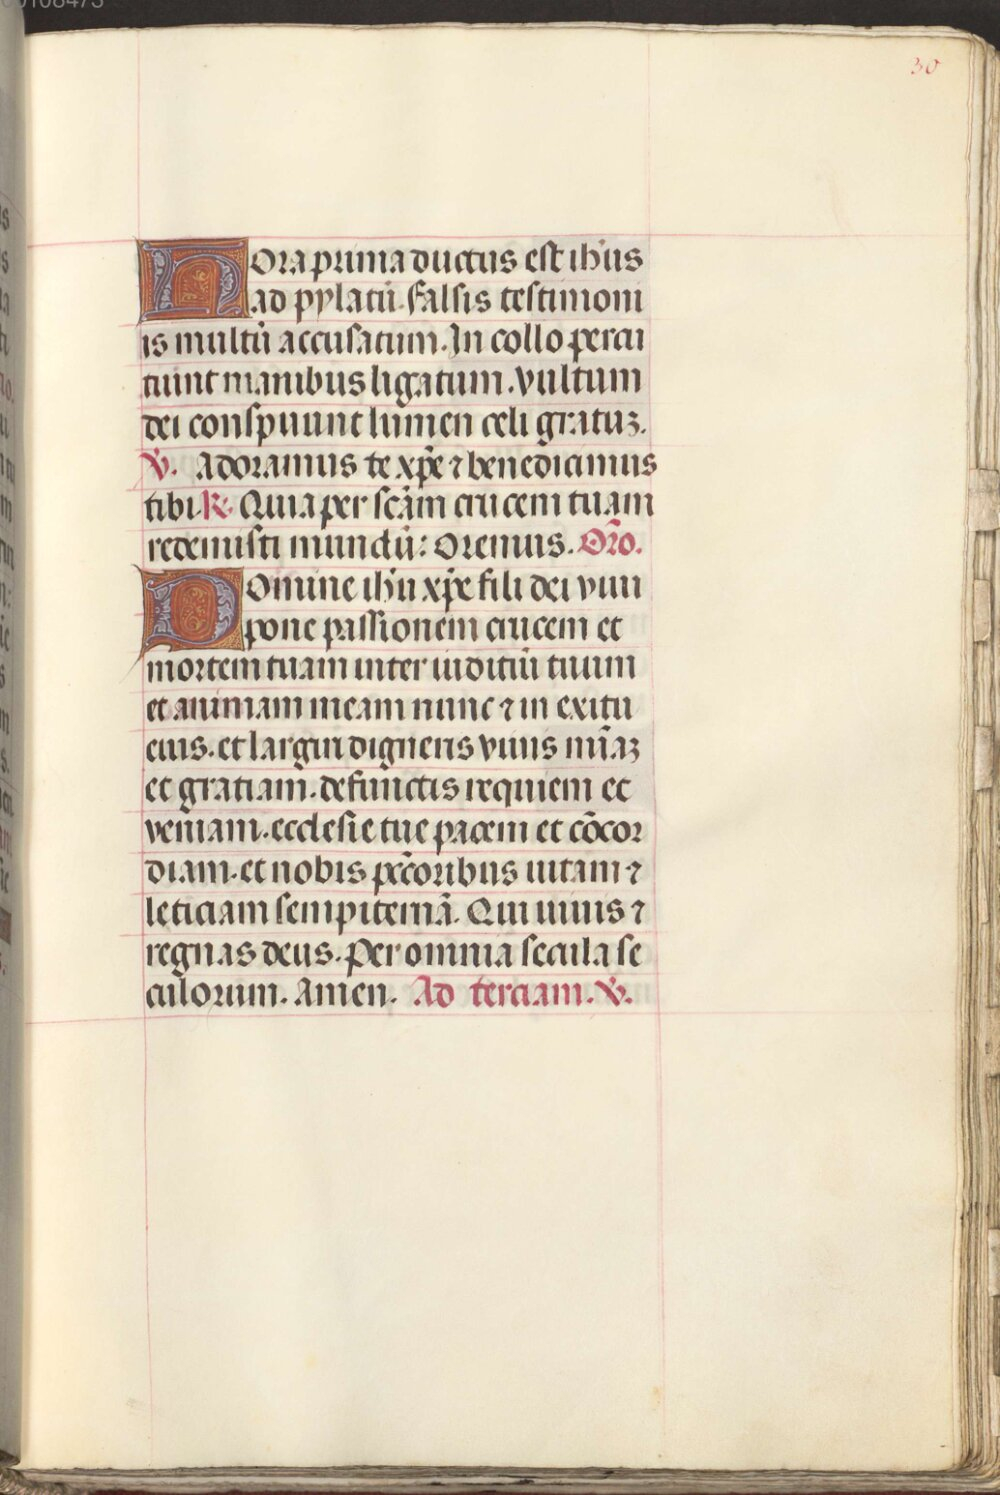 30
Hora prima ductus est ih̅us
ad pylatū. falsis testimoni
is multū accusatum. In collo percu
tiunt manibus ligatum. vultum
dei conspuunt lumen celi gratuȝ.
V. Adoramus te xp̅e ⁊ benedicimus
tibi R. Quia per sc̅am crucem tuam
redemisti mundū: Oremus. Or̅o.
Domine ih̅u xp̅e fili dei viui
pone passionem crucem et
mortem tuam inter iuditiū tuum
et animam meam nunc ⁊ in exitu
eius. et largiri digneris viuis mi̅aȝ
et gratiam. defunctis requiem et
veniam. ecclesie tue pacem et cōcor
diam. et nobis pc̅coribus uitam ⁊
leticiam sempiternā. Qui uiuis ⁊
regnas deus. Per omnia secula se
culorum. Amen. Ad terciam. V.